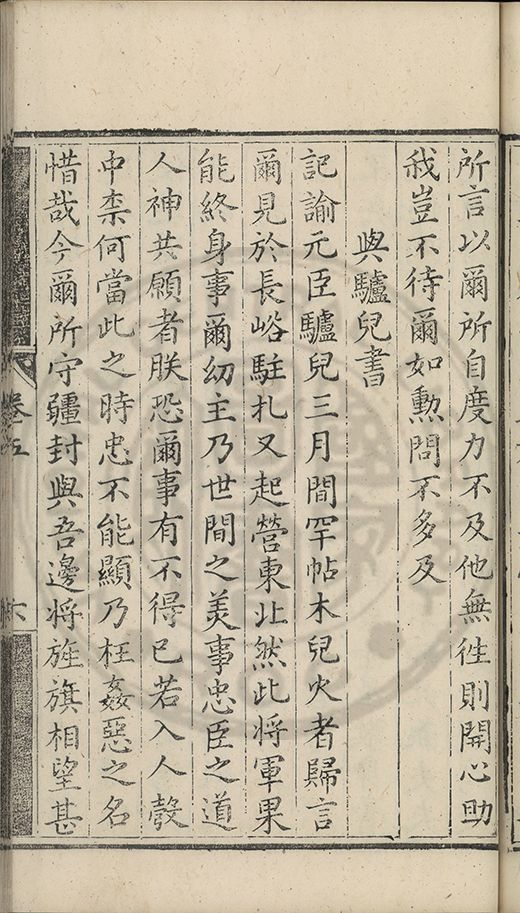 所言以爾所自度力不及他無徃則開心助
我豈不待爾如勲問不多及
與驢兒書
記諭元臣驢兒三月間罕帖木兒火者歸言
爾見於長峪駐札又起營東北然此將軍果
能終身事爾幼主乃世間之美事忠臣之道
人神共願者朕恐爾事有不得已若入人彀
中柰何當此之時忠不能顯乃枉姦惡之名
惜哉今爾所守疆封與吾邊将旌旗相望甚
卷五
六